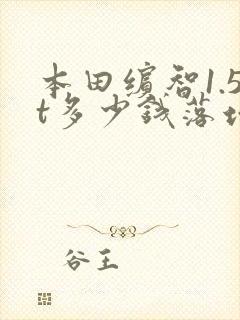 本田缤智1.5
t多少钱落地
谷王